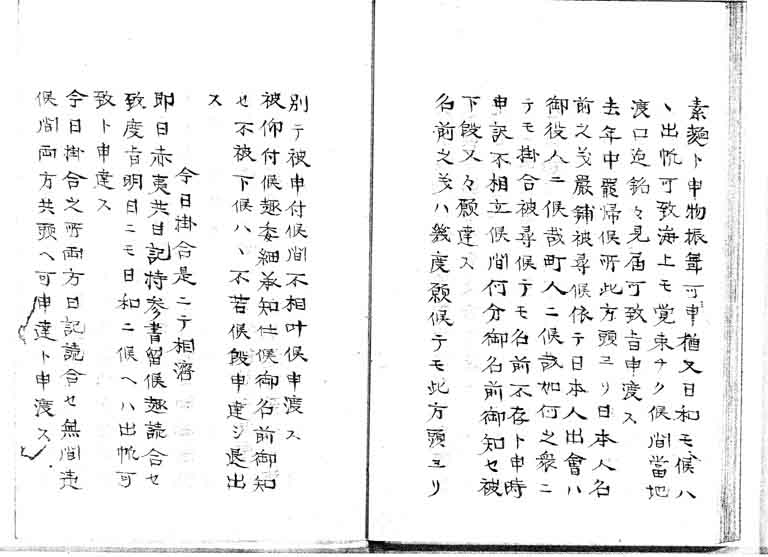 素麺ト申物振舞可申猶又日和モ候ハ
ヽ出帆可致海上モ覚束ナク候間當地
渡口迄銘々見届可致旨申渡ス
去年中罷帰候所此方頭ヨリ日本人名
前之義嚴鋪被尋候依テ日本人出會ハ
御役人ニ候哉町人ニ候哉如何之衆ニ
テモ掛合被尋候テモ名前不存ト申時
申訳不相立候間何分御名前御知セ被
下段又々願達ス
名前之義ハ幾度願候テモ此方頭ヨリ
別テ被申付候間不相叶候申渡ス
被仰付候趣委細承知仕候御名前御知
セ不被下候ハヽ不若候段申達シ退出
ス
今日掛合是ニテ相濟
即日赤夷共日記持参書留候趣読合セ
致度旨明日ニモ日和ニ候ヘハ出帆可
致ト申達ス
今日掛合之所両方日記読合セ無間違
候間両方共頭ヘ可申達ト申渡ス